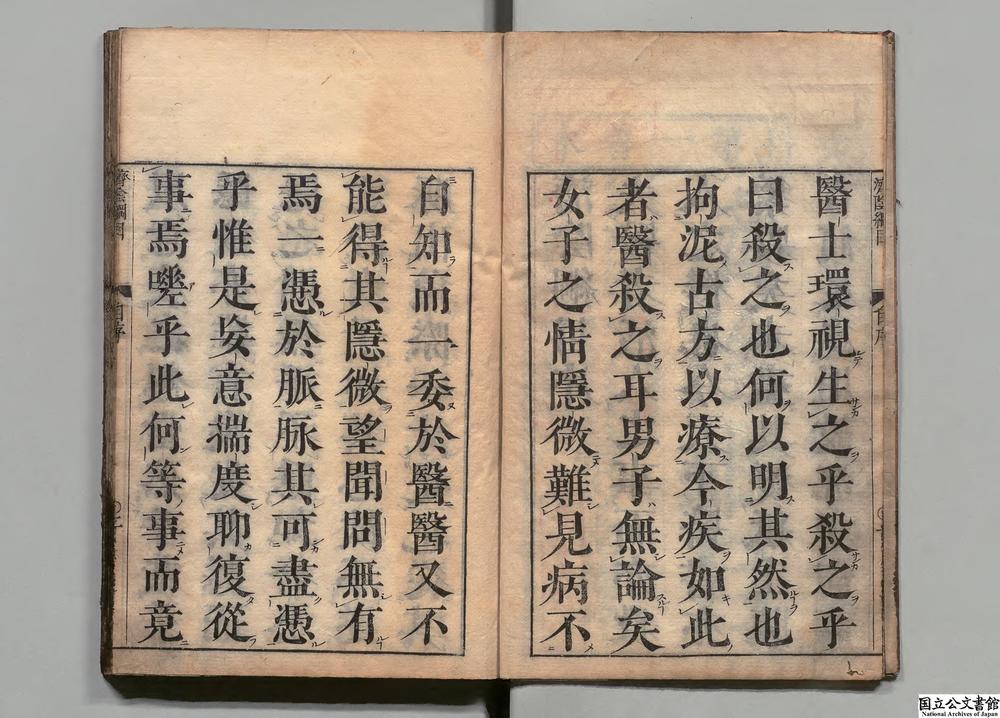 醫士環視生之乎殺之乎
曰殺之也何以明其然也
拘泥古方以療今疾如此
者醫殺之耳男子無論矣
女子之情隱微難見病不
自知而一委於醫醫又不
能得其隱微望聞問無有
焉一憑於脈脉其可盡憑
乎惟是妄意揣度聊復從
事焉嗟乎此何等事而竟
濟陰綱目
自序
国立公文書館
National Archives of Japan